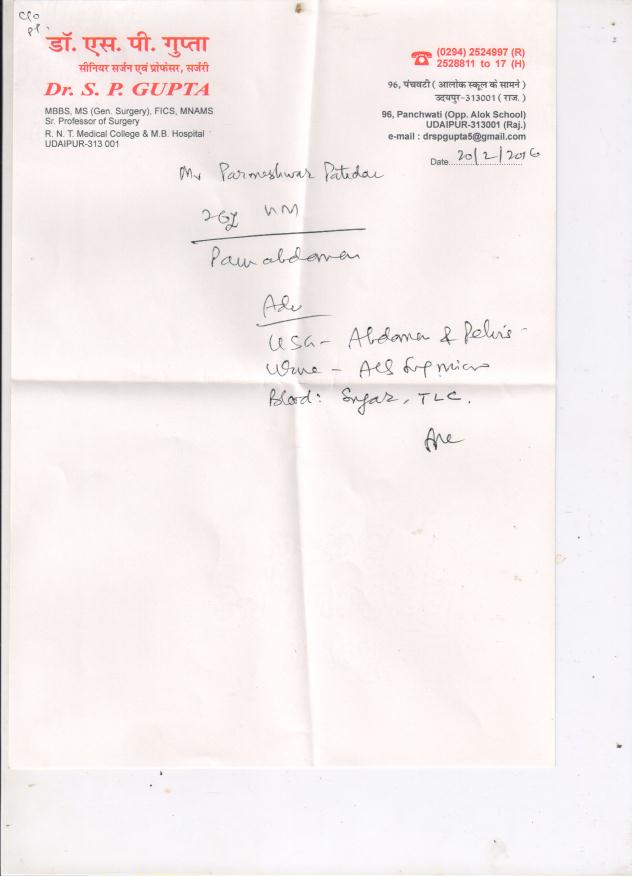 डॉ. एस. पी. गुप्ता
सीनियर सर्जन एवं प्रोफेसर, सर्जरी
Dr. S. P. GUPTA
MBBS, MS (Gen. Surgery), FICS, MNAMS
Sr. Professor of Surgery
R. N. T. Medical College & M.B. Hospital
UDAIPUR-313 001
(0294) 2524997 (R)
2528811 to 17 (H)
96, पंचवटी ( आलोक स्कूल के सामने )
उदयपुर-313001 ( राज. )
96, Panchwati (Opp. Alok School)
UDAIPUR-313001 (Raj.)
e-mail : drspgupta5@gmail.com
Date 20/2/2016
Mr Parmeshwar Patidar
Pain abdomen
Adv
USG - Abdomen & Pelvis -
Urine -
Blood: Sugar, TLC.